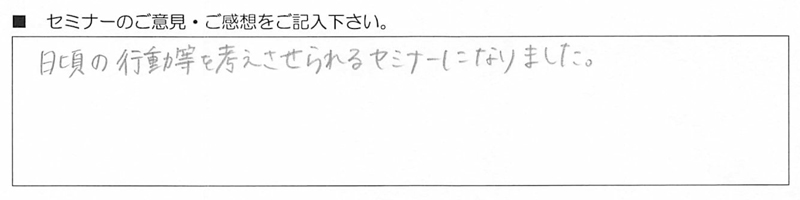 ■ セミナーのご意見・ご感想をご記入下さい。
日頃の行動等を考えさせられるセミナーになりました。